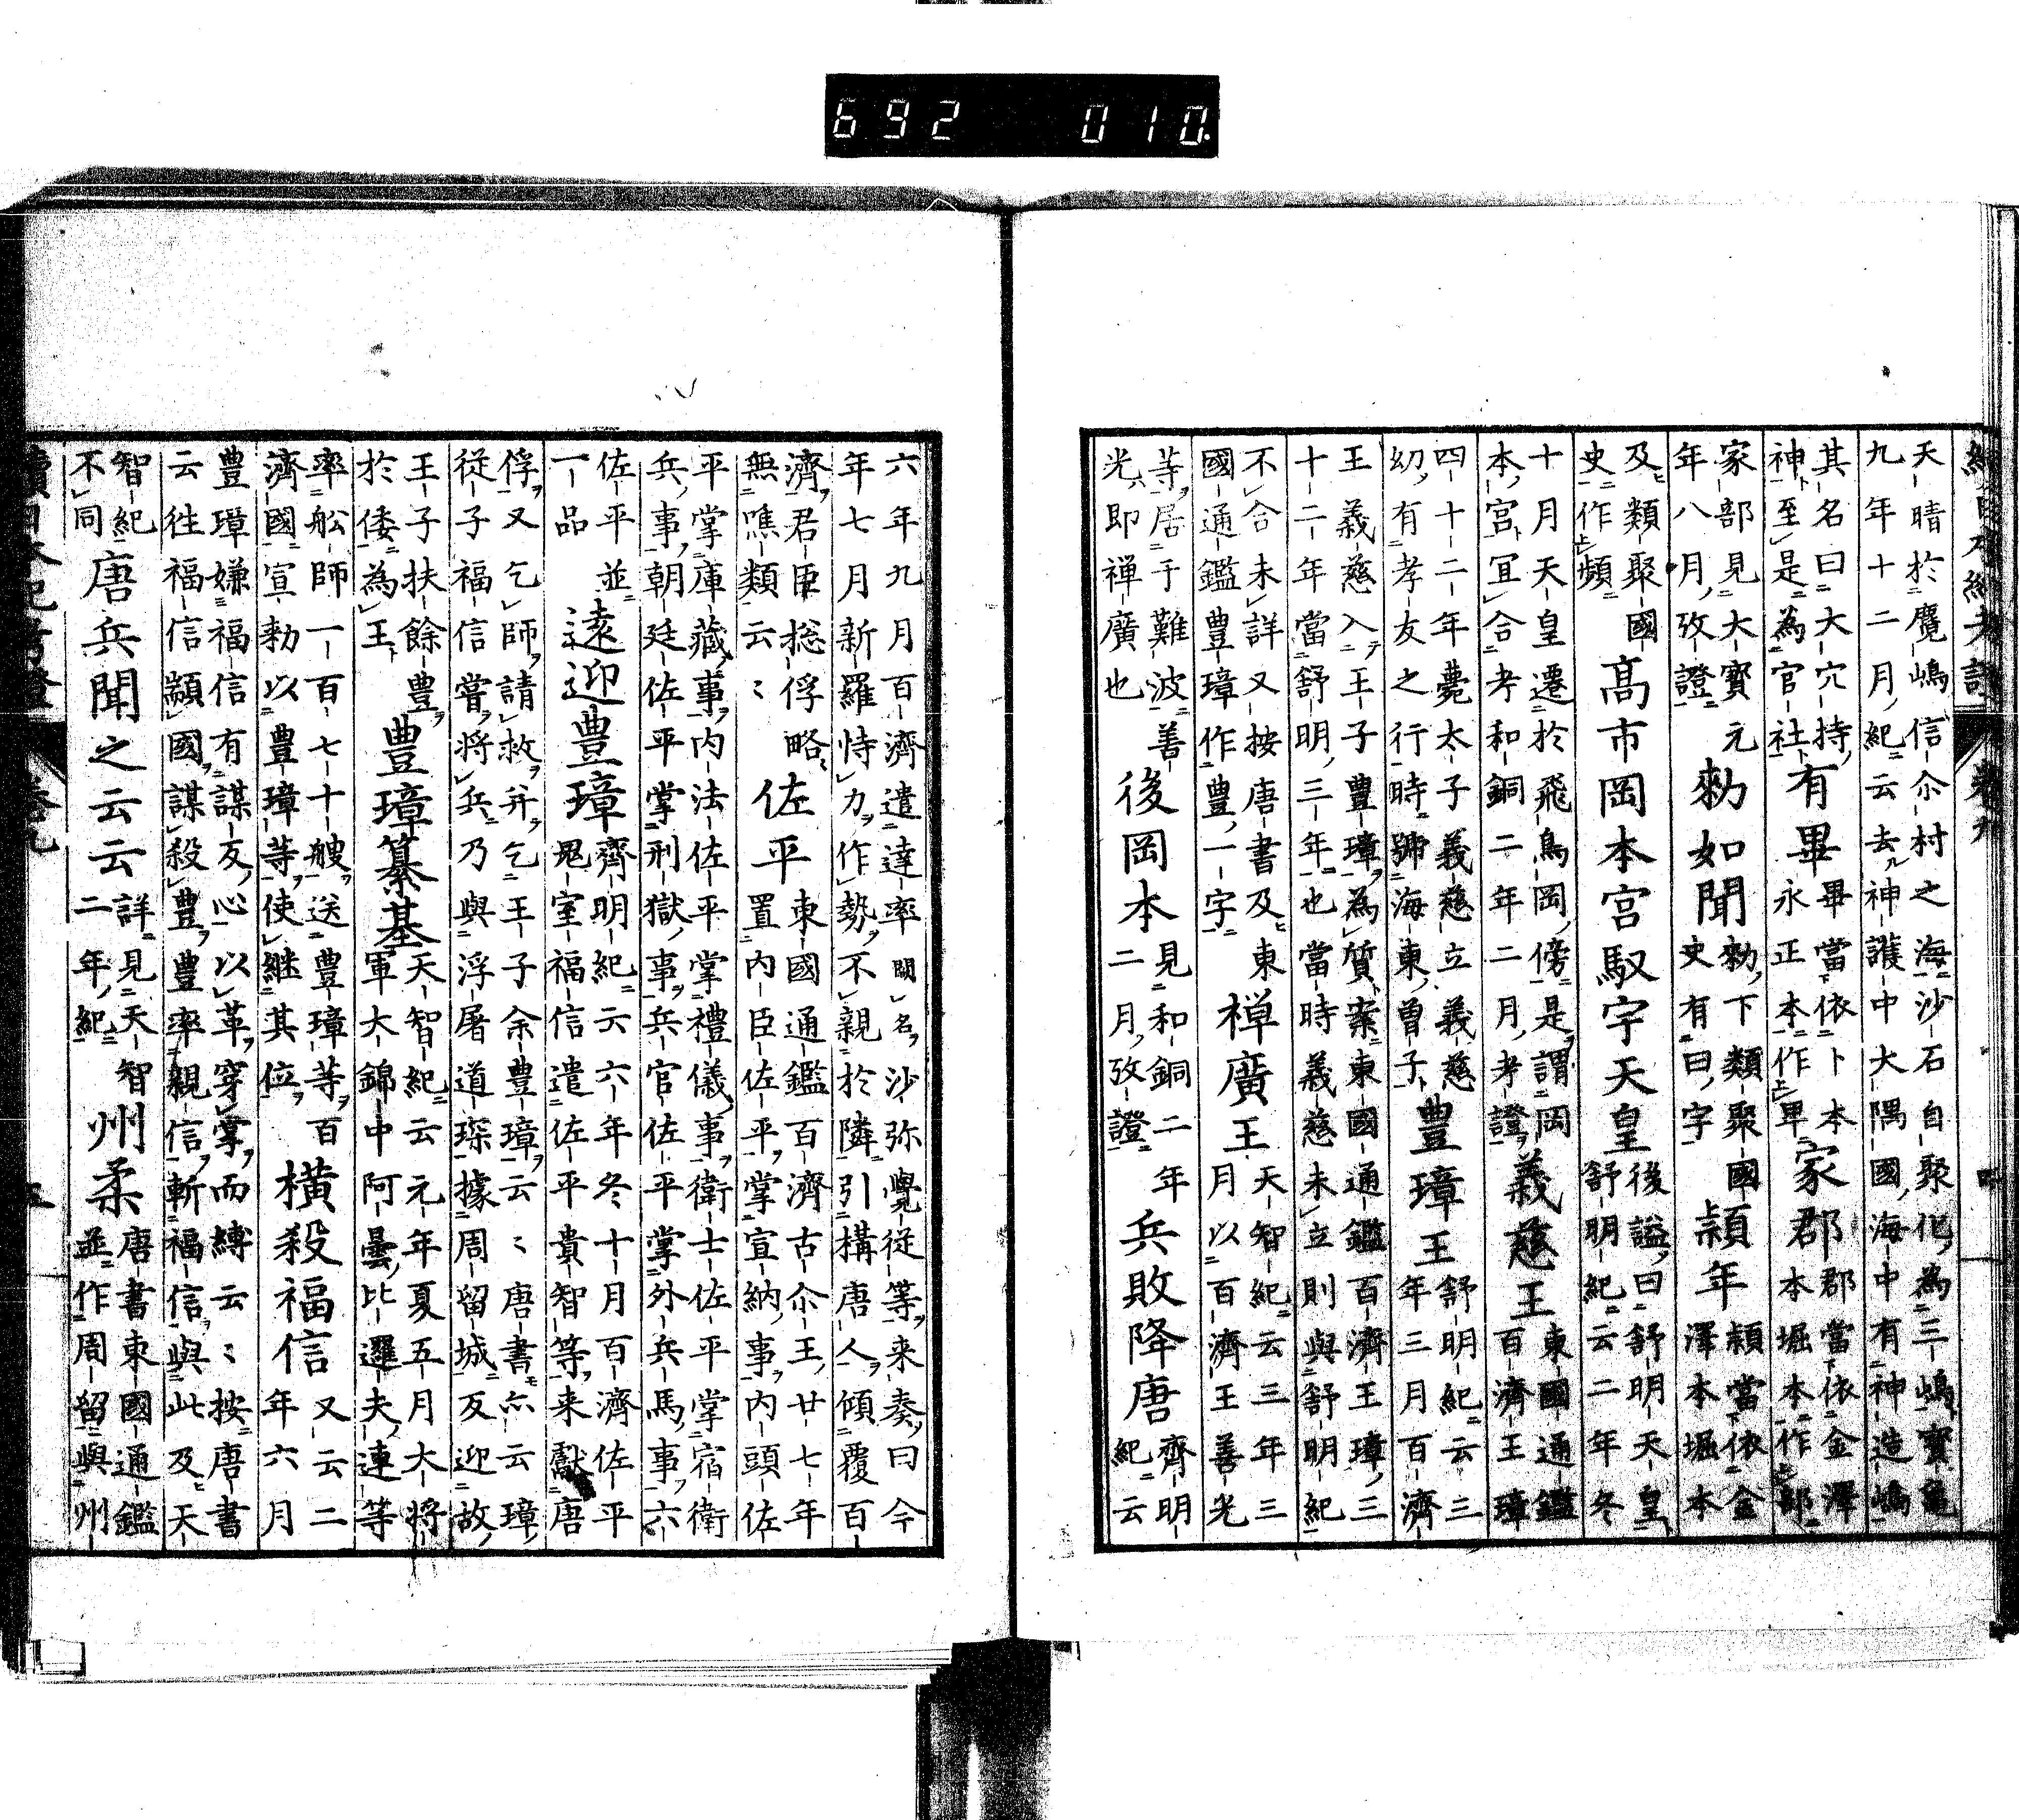 天晴於麑嶋信尒村之海沙石自聚化為三嶋寶龜
九年十二月紀云去神護中大隅國海中有神造嶋
其名曰大穴持
神至是為官社
有畢
畢當依卜本
永正本作畢
家郡
郡當依金澤
本堀本作部
家部見大寶元
年八月攷證
勅如聞
勅下類聚國
史有曰字
潁年
頴當依金
澤本堀本
及類聚國
史作頻
髙市岡本宮馭宇天皇
後謚曰舒明天皇
舒明紀云二年冬
十月天皇遷於飛鳥岡傍是謂岡
本宮冝合考和銅二年二月考證
義慈王
東國通鑑
百濟王璋
四十二年薨太子義慈立義慈
幼有孝友之行時號海東曽子
豊璋王
舒明紀云三
年三月百濟
王義慈入王子豊璋為質案東國通鑑百濟王璋三
十二年當舒明三年也當時義慈未立則與舒明紀
不合未詳又按唐書及東
國通鑑豊璋作豊一字
禅廣王
天智紀云三年三
月以百濟王善光
等居于難波善
光即禅廣也
後岡本
見和銅二年
二月攷證
兵敗降唐
齊明
紀云
六年九月百濟遣達率闕名沙弥覺従等来奏曰今
年七月新羅恃力作勢不親於隣引構唐人傾覆百
濟君臣揔俘略
無噍類云〻
佐平
東國通鑑百濟古尒王廿七年
置内臣佐平掌宣納事内頭佐
平掌庫藏事内法佐平掌禮儀事衛士佐平掌宿衛
兵事朝廷佐平掌刑獄事兵官佐平掌外兵馬事六
佐平並
一品
遠迎豊璋
齊明紀云六年冬十月百濟佐平
鬼室福信遣佐平貴智等来獻唐
俘又乞師請救并乞王子余豊璋云〻唐書亦云璋
従子福信嘗将兵乃與浮屠道琛據周留城反迎故
王子扶餘豊
於倭為王
豊璋纂基
天智紀云元年夏五月大将
軍大錦中阿曇比邏夫連等
率舩師一百七十艘送豊璋等百
濟國宣勅以豊璋等使継其位
横殺福信
又云二
年六月
豊璋嫌福信有謀反心以革穿掌而縛云〻按唐書
云往福信顓國謀殺豊豊率親信斬福信與此及天
智紀
不同
唐兵聞之云云
詳見天智
二年紀
州柔
唐書東國通鑑
並作周留與州